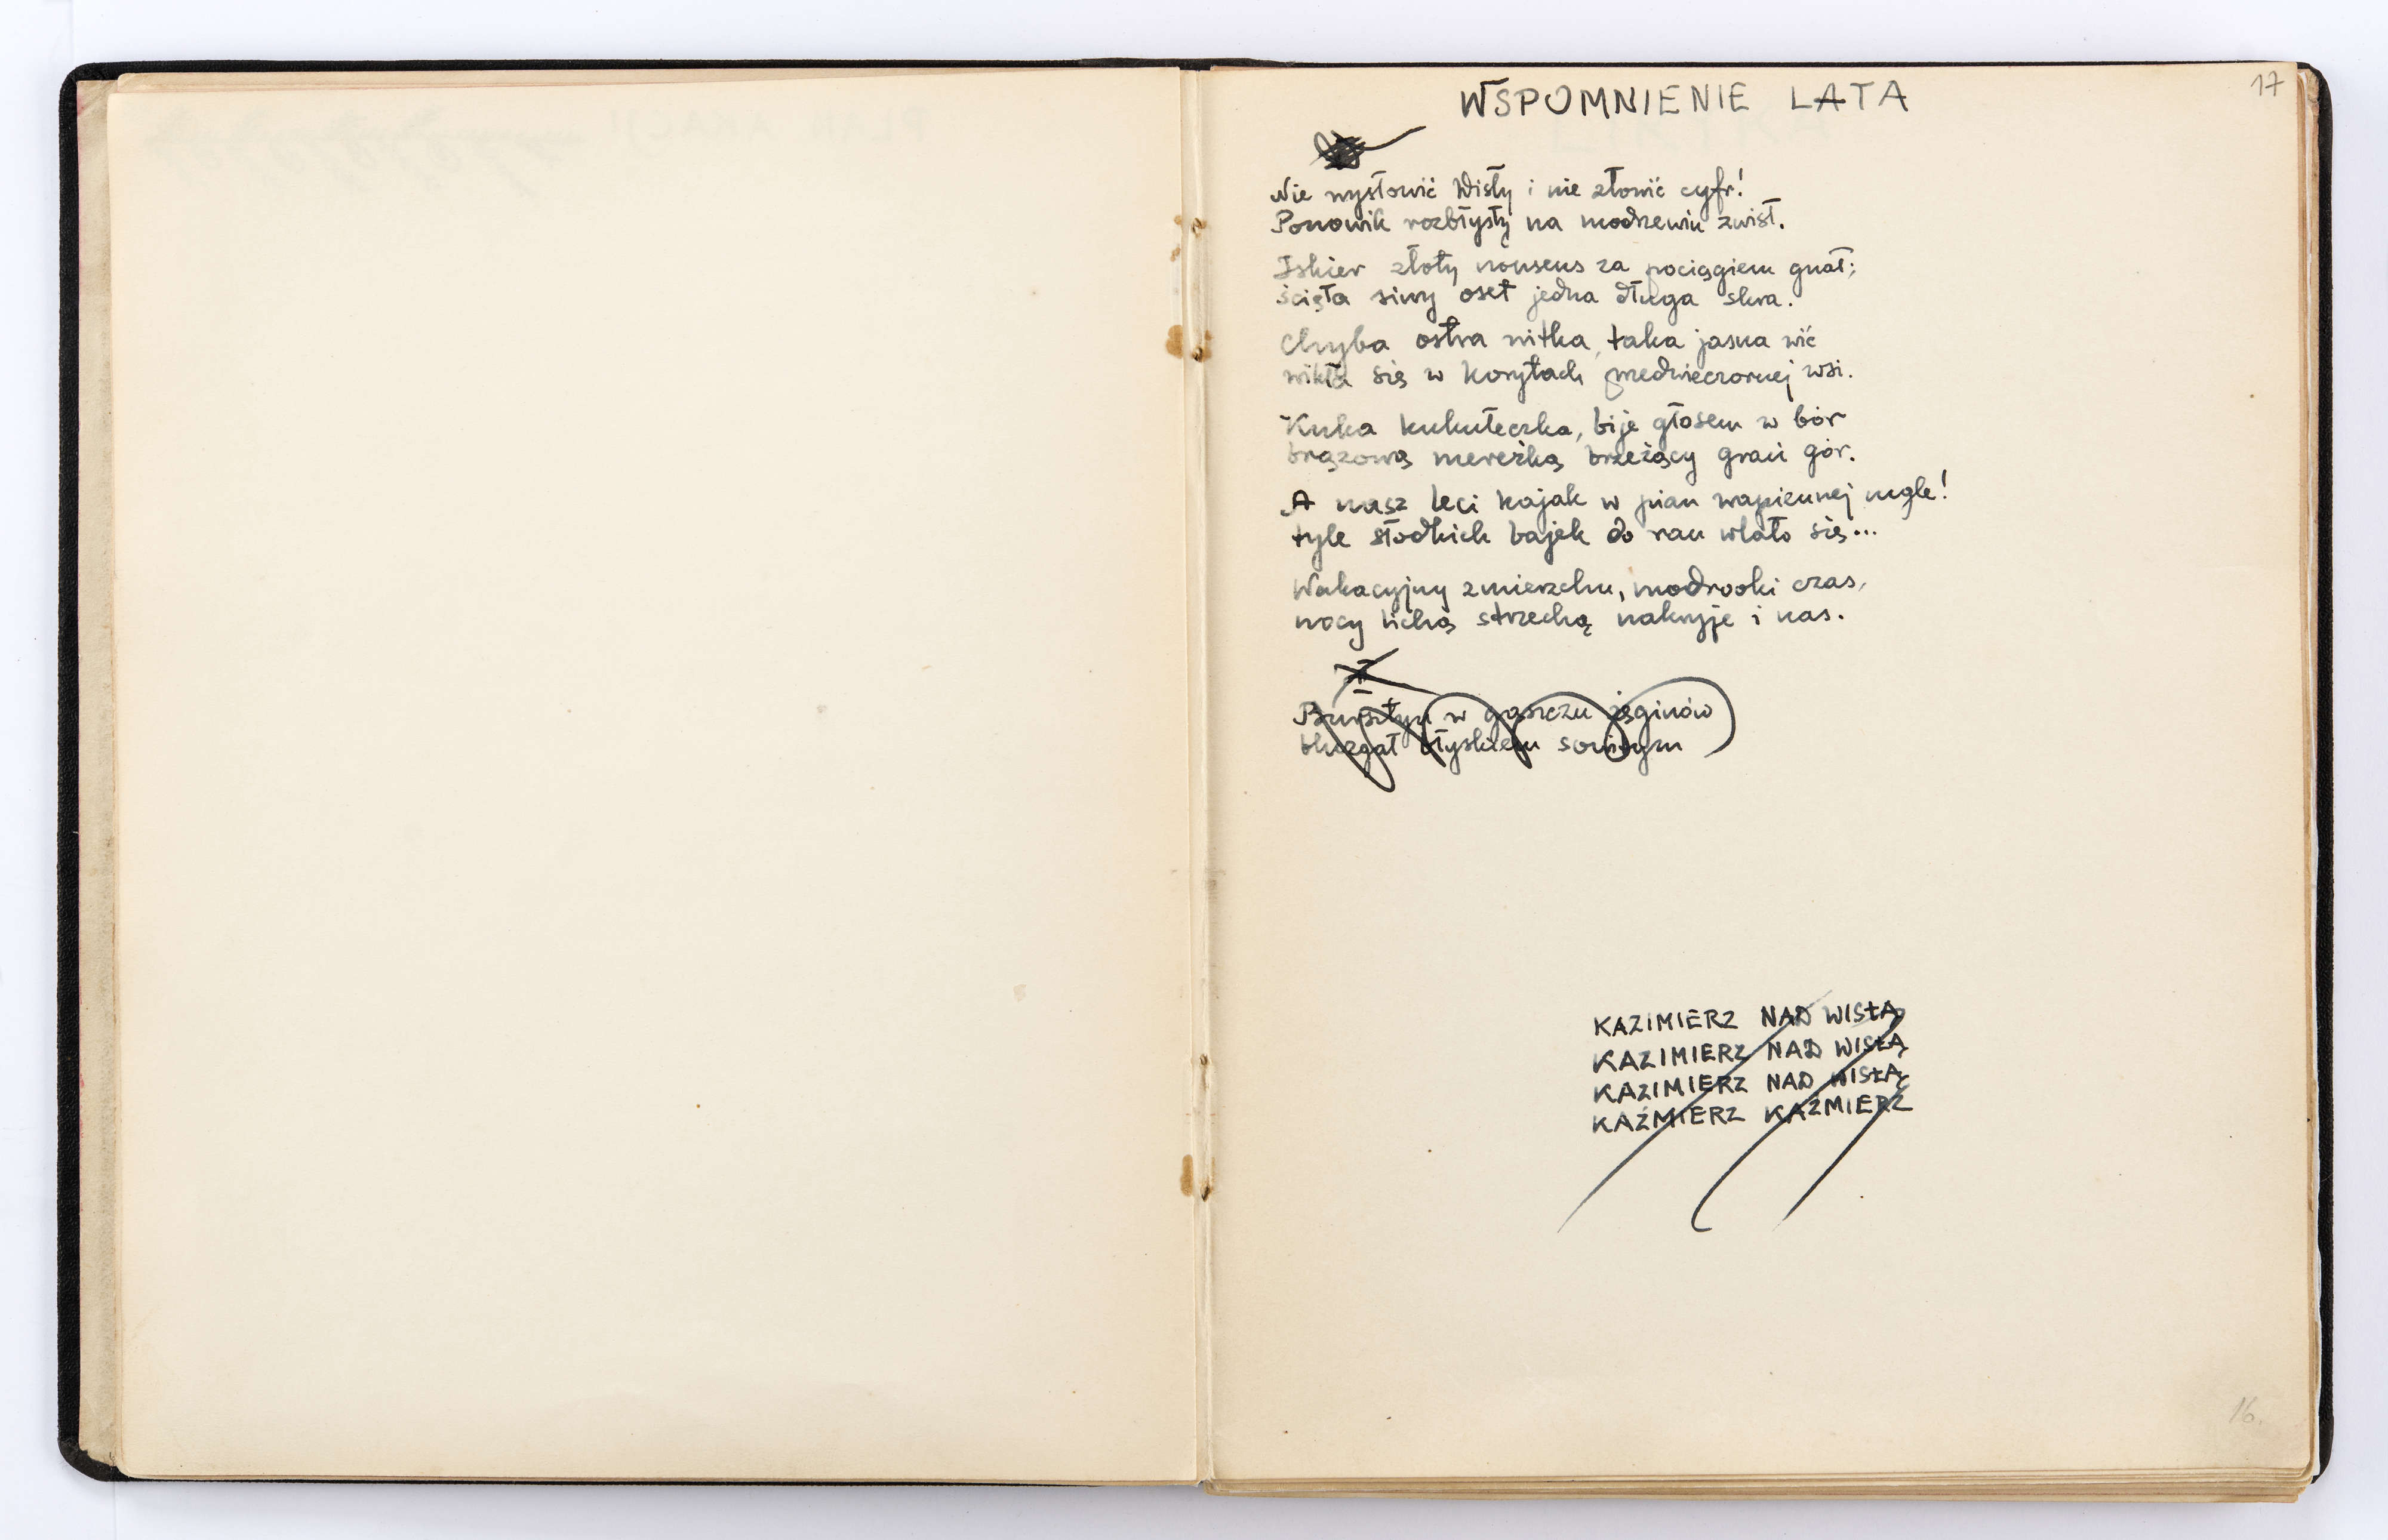 17
WSPOMNIENIE LATA
Nie wysłowić Wisły i nie złowić cyfr!
Ponowik rozbłysły na modrzewiu zwisł.
Iskier złoty nonsens za pociągiem gnał;
ścięła siwy oset jedna długa skra.
Chyba ostra nitka, taka jasna wić
wikła się w korytach przedwieczornej wsi.
Kuka kukułeczka, bije głosem w bór
brązową mereżką brzeżący grań gór.
A nasz leci kajak w pian wapiennej mgle!
tyle słodkich bajek do ran wlało się...
Wakacyjny zmierzchu, modrooki czas,
nocy lichą strzechą nakryje i nas.
II
Bursztyn w gąszczu jęginów
bluzgał błyskiem sowitym
KAZIMIERZ NAD WISŁĄ
KAZIMIERZ NAD WISŁĄ
KAZIMIERZ NAD WISŁĄ
KAŹMIERZ KAŹMIERZ
16.